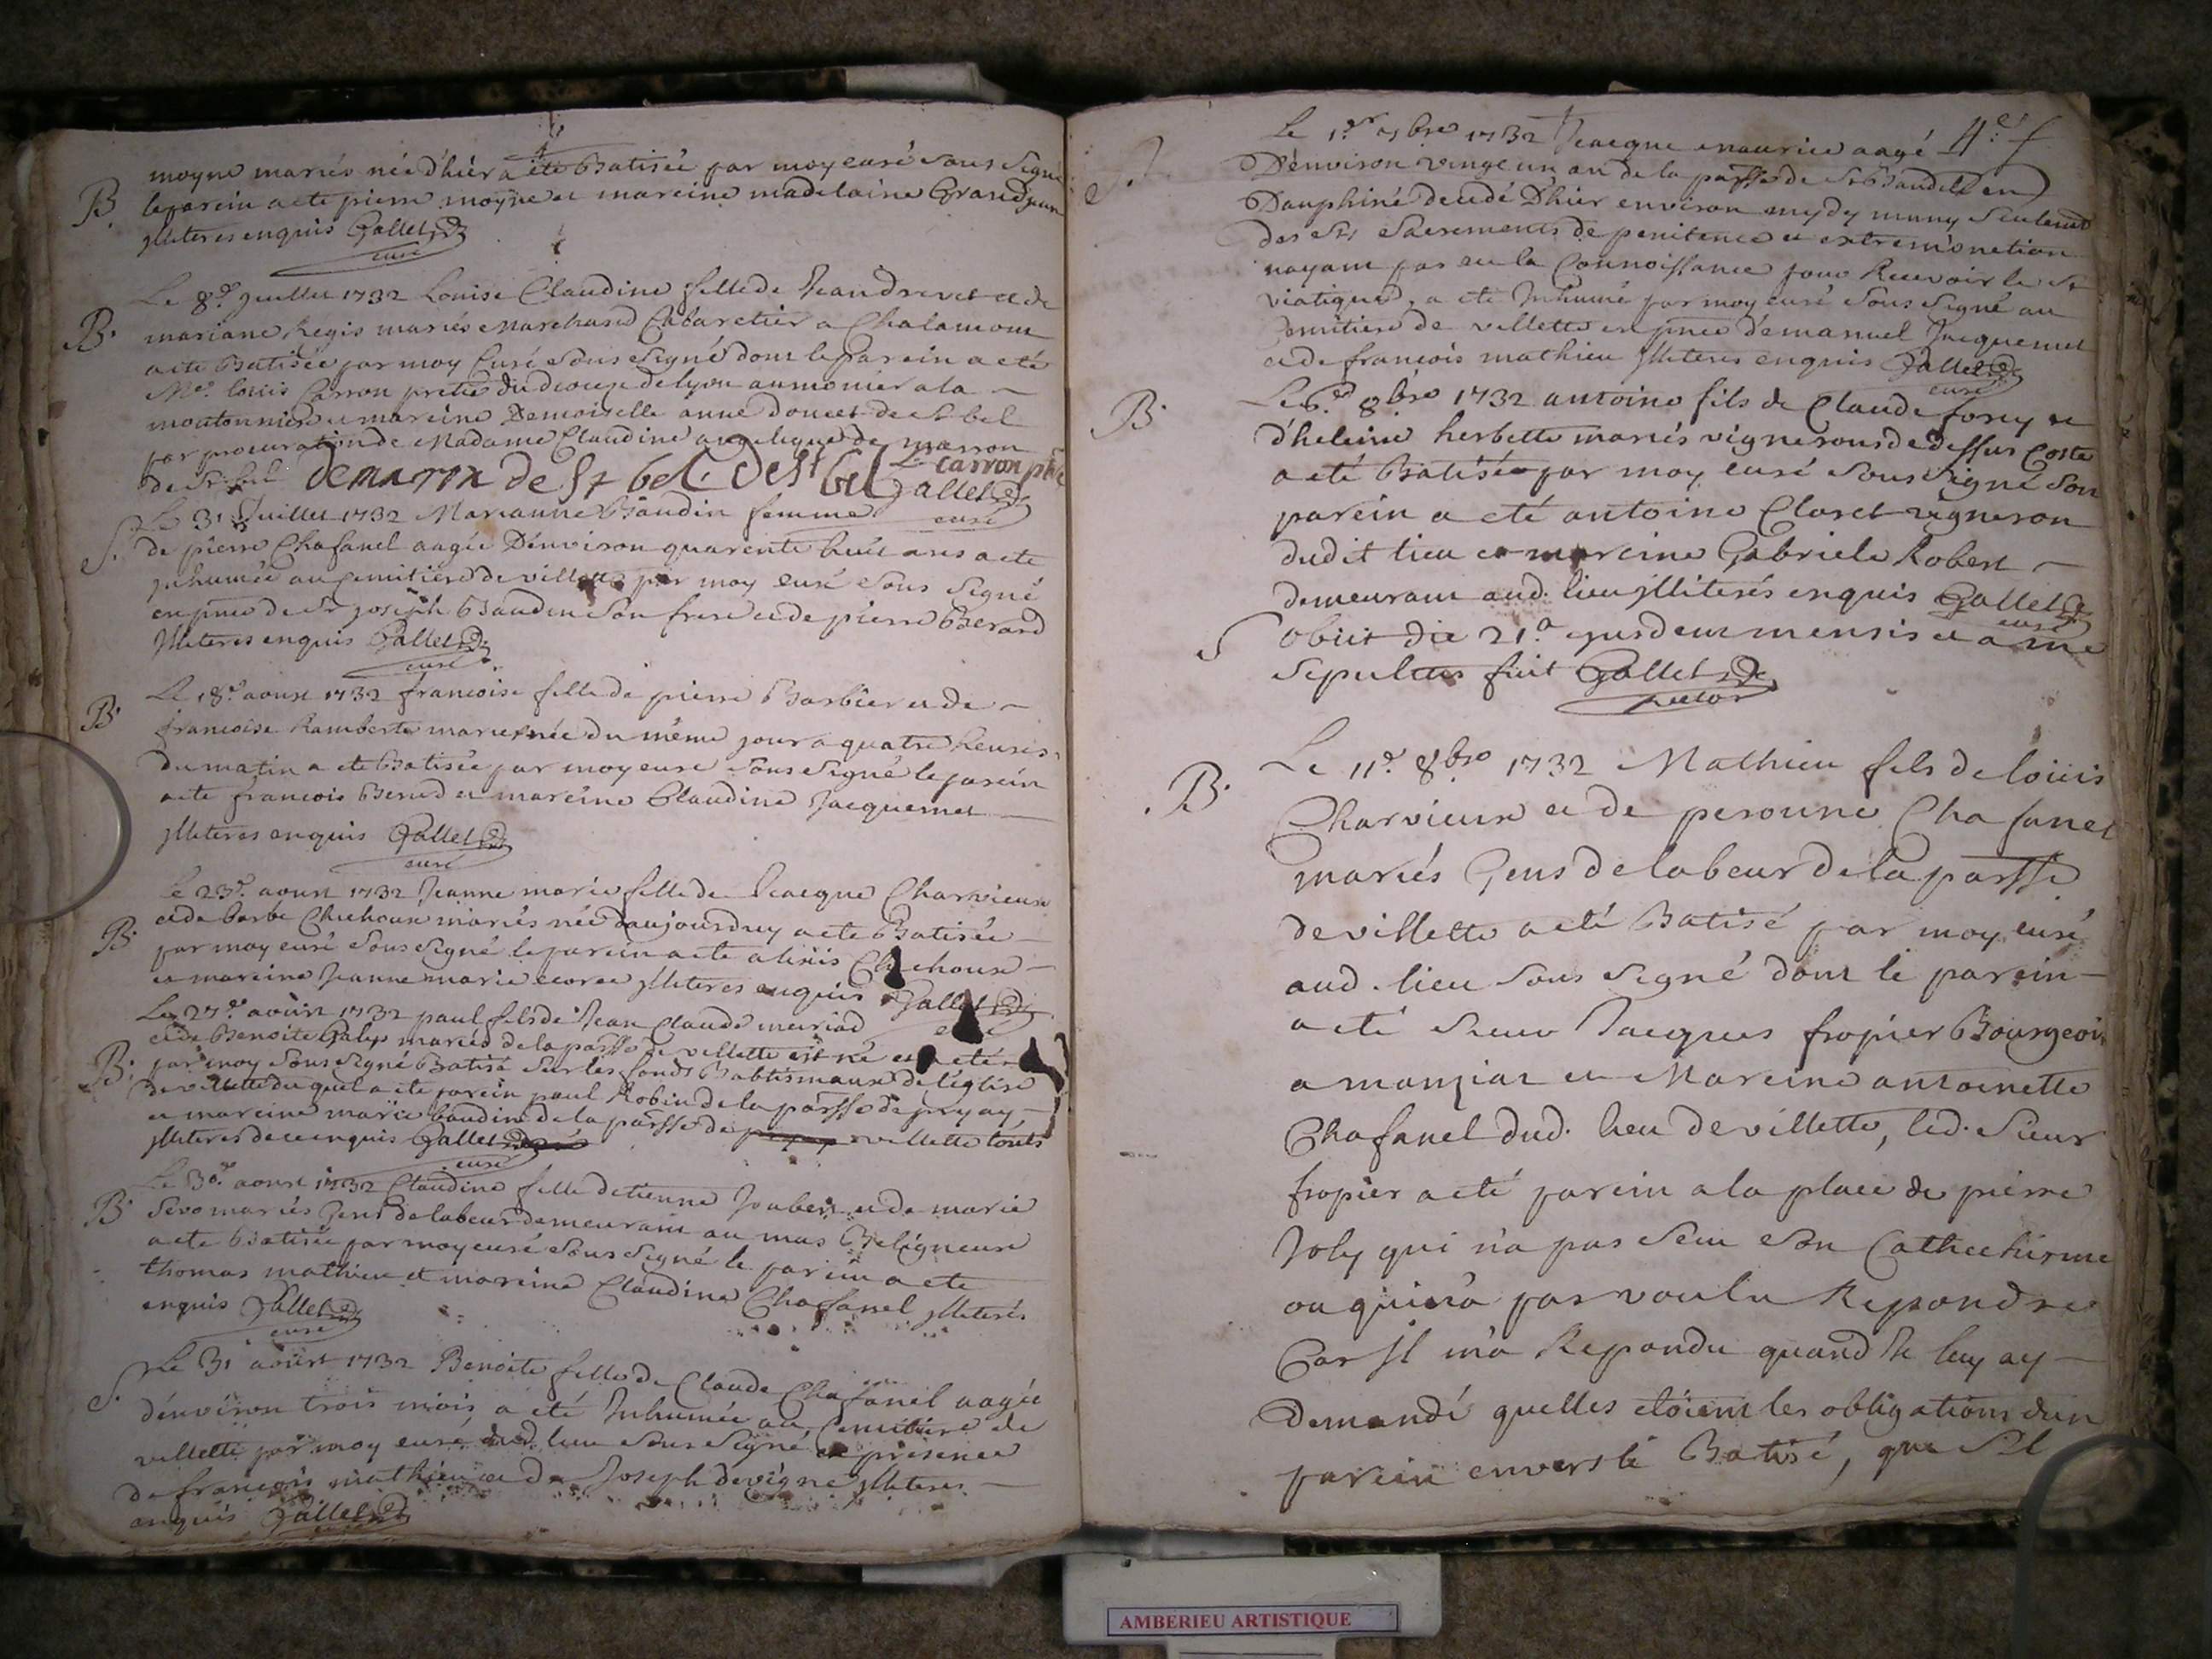 moyne mariés née d'hiér a été Batisée par moy curé sous signé
B. le parein a eté pierre moyne et mareine madelaine Grandjean
Jlliteres enquis Gallet
curé
Le 8.e Juillet 1732 Louise Claudine fille de Jean drevet et de
B. mariane Regis mariés Marchand Cabaretier a Chalamont
a eté Batisée par moy Curé sous signé dont le parein a eté
Me. loüis Carron pretre du diocese de lyon aumonier a la
montonniere et mareine Demoiselle anne doucet de St bel
par procuration de Madame Claudine angelique de marron
de St bel demarron de St bel. De St bel L. Carron ptre
Gallet curé
Le 31 Juillet 1732 Marianne Baudin femme
S. de pierre Chafanel aagée D'énviron quarente huit ans a eté
Jnhumée au cemitiere de villette par moy curé sous signé
en pnce de Sr joseph Baudin son frere et de pierre Berard
Jlliteres enquis Gallet
curé
Le 18.e aoust 1732 francoise fille de pierre Barbier et de
B. francoise Ramberte mariés née du méme jour a quatre heures
du matin a eté Batisée par moy curé sous signé le parein
a eté francois Berud et mareine Claudine Jacquemet
Jlliteres enquis Gallet
curé
Le 23.e aoust 1732 Jeanne marie fille de Jacque Charvieux
et de barbe Chichoux mariés née d'aujourduy a eté Batisée
B. par moy curé sous signé le parein a eté alixis Chichoux
et mareine Jeanne marie Jlliteres enquis Gallet
curé
Le 27.e aoüst 1732 paul fils de Jean Claude meuriad
et de Benoite Galy mariés de la parsse de villette est né et a eté
B. par moy sous signé Batisé sur les fonds Babtismaux de l'église
de villette du quel a eté parein paul Robin de la parsse de pryay
et mareine marie baudin de la parsse de villette touts
Jlliteres de ce enquis Gallet
curé
Le 30.e aoust 1732 Claudine fille detienne Joubert et de marie
B. Sevo mariés Gens de labeur demeurant au mas Beligneux
a eté Batisée par moy curé sous signé le parein a eté
thomas mathieu et mareine Claudine Chafanel Jlliterés
enquis Gallet
curé
Le 31 aoüst 1732 Benoite fille de Claude Chafanel aagée
S. d'énviron trois mois a eté Jnhumée au Cemitiere de
villette par moy curé dud. lieu sous signé en présence
de françois mathieu et de Joseph devigne Jlliteres
enquis Gallet
Le 1.er 7bre 1732 Jacque maurice aagé 4.e f
S. D'énviron vingt un an de la parsse de St Baudille en
Dauphiné decedé D'hier environ mydy muny seulemt
des Sts Sacrements de penitence et extrem'onction
nayant pas eu la Connoissance pour Recevoir le St
viatique, a eté Jnhumé par moy curé sous signé au
cemitiere de villette en pnce d'emanuel Jacquemet
et de françois mathieu Jlliteres enquis Gallet
curé
B. Le 6.e 8bre 1732 antoine fils de Claude forey et
d'heleine herbette mariés vignerons de dessus Coste
a eté Batisé par moy curé sous signé son
parein a eté antoine Claret vigneron
dudit lieu et mareine Gabriele Robert
demeurant aud. lieu Jlliterés enquis Gallet
curé
S obiit die 21.a ejusdem mensis et a me
sepultus fuit Gallet
rector
Le 11.e 8bre 1732 Mathieu fils de loüis
B. Charvieux et de peronne Chafanel
mariés Gens de labeur de la parsse
de villette a eté Batisé par moy curé
aud. lieu sous signé dont le parein
a eté sieur Jacques fropier Bourgeois
a manziat et Mareine antoinette
Chafanel dud. lieu de villette, led. sieur
fropier a eté parein a la place de pierre
Joly qui n'a pas sceu son Cathechisme
ou qui n'a pas voulu Repondre
Car Jl m'a Repondu quand Je luy ay
Demandé quelles étoient les obligations d'un
parein envers le Batisé, que s'il
AMBERIEU ARTISTIQUE